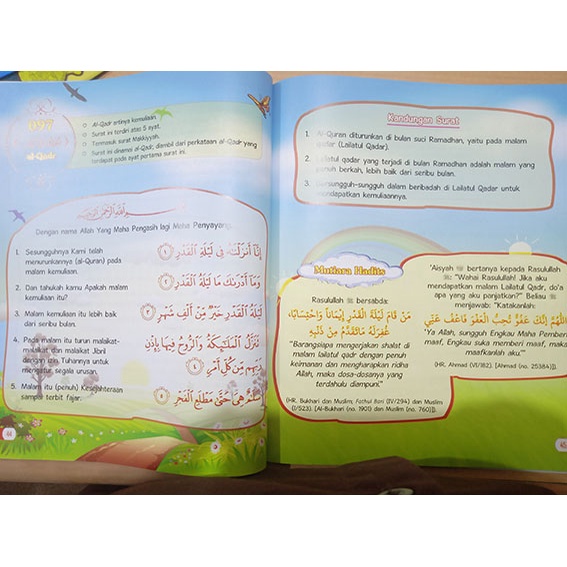 097
al-Qadr
Al-Qadr artinya kemuliaan.
Surat ini terdiri atas 5 ayat.
Termasuk surat Makkiyyah.
Surat ini dinamai al-Qadr, diambil dari perkataan al-Qadr yang
terdapat pada ayat pertama surat ini.
Dengan nama Allah Yang Maha Pengasih lagi Maha Penyayang.
1. Sesungguhnya Kami telah
menurunkannya (al-Quran) pada
malam kemuliaan.
إِنَّا أَنزَلْنَٰهُ فِي لَيْلَةِ ٱلْقَدْرِ ١
2. Dan tahukah kamu Apakah malam
kemuliaan itu?
وَمَا أَدْرَىٰكَ مَا لَيْلَةُ ٱلْقَدْرِ ٢
3. Malam kemuliaan itu lebih baik
dari seribu bulan.
لَيْلَةُ ٱلْقَدْرِ خَيْرٌ مِّنْ أَلْفِ شَهْرٍ ٣
4. Pada malam itu turun malaikat-
malaikat dan malaikat Jibril
dengan izin Tuhannya untuk
mengatur segala urusan.
تَنَزَّلُ ٱلْمَلَٰٓئِكَةُ وَٱلرُّوحُ فِيهَا بِإِذْنِ
رَبِّهِم مِّن كُلِّ أَمْرٍ ٤
5. Malam itu (penuh) Kesejahteraan
sampai terbit fajar.
سَلَٰمٌ هِيَ حَتَّىٰ مَطْلَعِ ٱلْفَجْرِ ٥
44
Kandungan Surat
1. Al-Quran diturunkan di bulan suci Ramadhan, yaitu pada malam
qadar (Lailatul Qadar).
2. Lailatul qadar yang terjadi di bulan Ramadhan adalah malam yang
penuh berkah, lebih baik dari seribu bulan.
3. Bersungguh-sungguh dalam beribadah di Lailatul Qadar untuk
mendapatkan kemuliaannya.
Mutiara Hadits
Rasulullah ﷺ bersabda:
مَنْ قَامَ لَيْلَةَ الْقَدْرِ إِيْمَانًا وَاحْتِسَابًا،
غُفِرَ لَهُ مَا تَقَدَّمَ مِنْ ذَنْبِهِ
"Barangsiapa mengerjakan shalat di
malam lailatul qadr dengan penuh
keimanan dan mengharapkan ridha
Allah, maka dosa-dosanya yang
terdahulu diampuni."
(HR. Bukhari dan Muslim; Fathul Bari (IV/294) dan Muslim
(I/523). [Al-Bukhari (no. 1901) dan Muslim (no. 760)]).
'Aisyah bertanya kepada Rasulullah
ﷺ: "Wahai Rasulullah! Jika aku
mendapatkan malam Lailatul Qadr, do'a
apa yang aku panjatkan?" Beliau ﷺ
menjawab: "Katakanlah:
اَللّٰهُمَّ إِنَّكَ عَفُوٌّ تُحِبُّ الْعَفْوَ فَاعْفُ عَنِّي
'Ya Allah, sungguh Engkau Maha Pemberi
maaf, Engkau suka memberi maaf, maka
maafkanlah aku.'"
(HR. Ahmad (VI/182). [Ahmad (no. 25384)]).
45